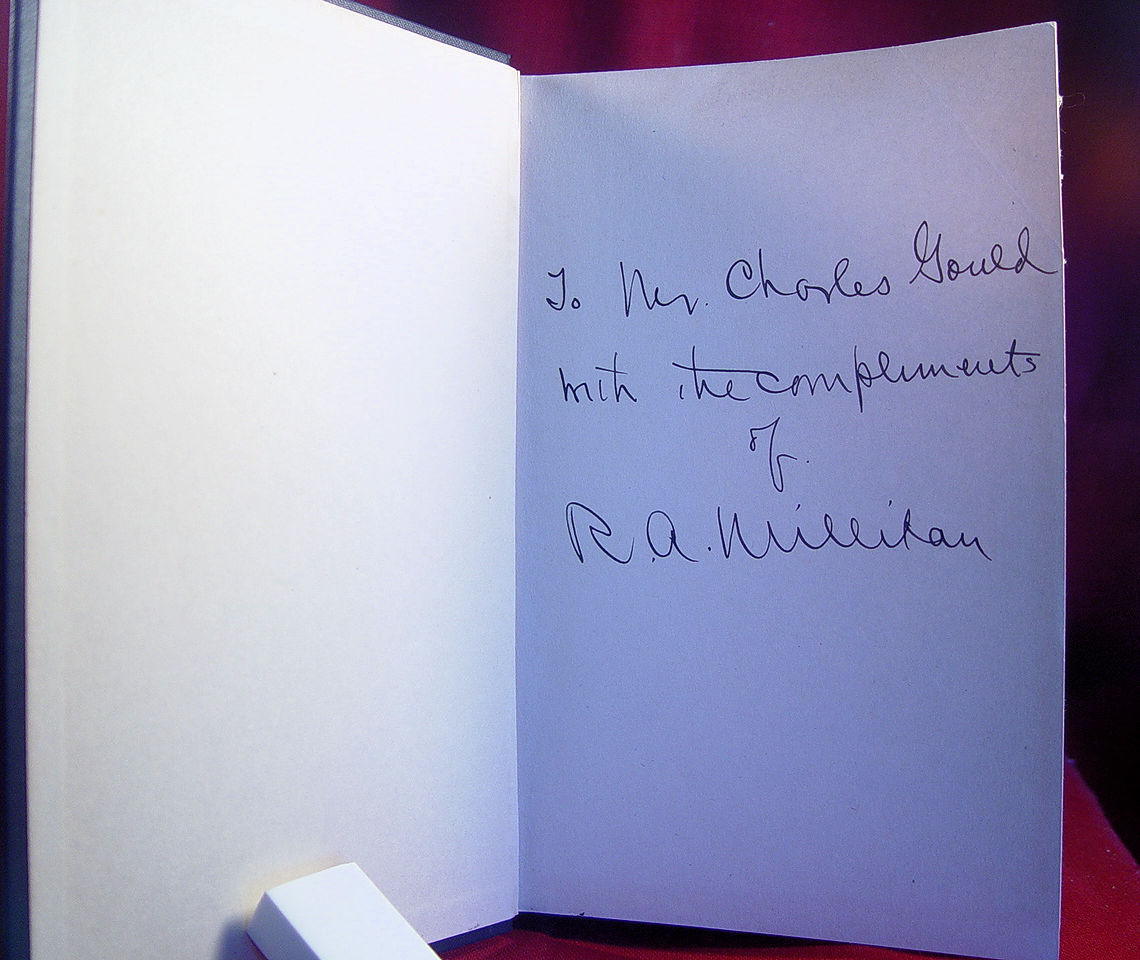 To Mr. Charles Gould
with the compliments
of
R.A. Millikan